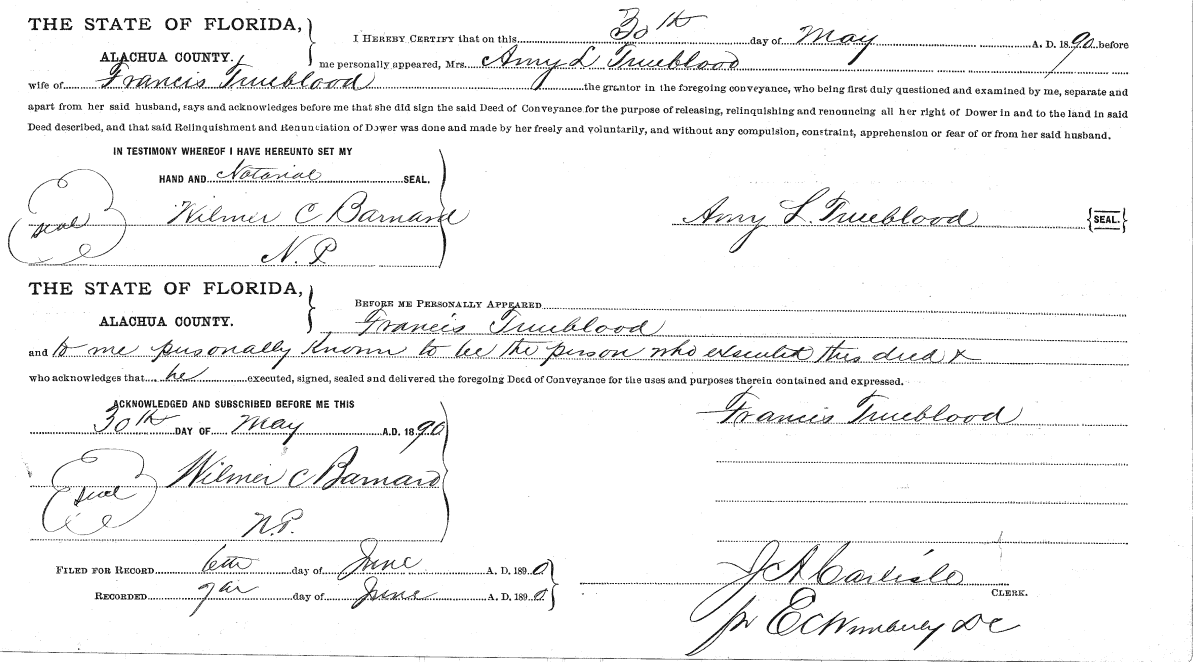 THE STATE OF FLORIDA,
ALACHUA COUNTY.
I HEREBY CERTIFY that on this 30th day of May A. D. 1890 before
me personally appeared, Mrs. Amy L Trueblood
wife of Francis Trueblood the grantor in the foregoing conveyance, who being first duly questioned and examined by me, separate and
apart from her said husband, says and acknowledges before me that she did sign the said Deed of Conveyance for the purpose of releasing, relinquishing and renouncing all her right of Dower in and to the land in said
Deed described, and that said Relinquishment and Renunciation of Dower was done and made by her freely and voluntarily, and without any compulsion, constraint, apprehension or fear of or from her said husband.
IN TESTIMONY WHEREOF I HAVE HEREUNTO SET MY
HAND AND Notarial SEAL.
seal Wilmer C Barnard
N. P.
Amy L. Trueblood {SEAL.}
THE STATE OF FLORIDA,
ALACHUA COUNTY.
BEFORE ME PERSONALLY APPEARED
Francis Trueblood
and to me personally known to be the person who executed this deed &
who acknowledges that he executed, signed, sealed and delivered the foregoing Deed of Conveyance for the uses and purposes therein contained and expressed.
ACKNOWLEDGED AND SUBSCRIBED BEFORE ME THIS
30th DAY OF May A.D. 1890
seal Wilmer C Barnard
N.P.
Francis Trueblood
FILED FOR RECORD 6th day of June A. D. 1890
RECORDED 7th day of June A. D. 1890
J A Carlisle
CLERK.
pr E C DC